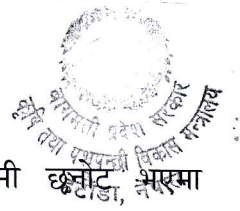 बागमती प्रदेश सरकार
कृषि तथा पशुपन्छी विकास मन्त्रालय
नी छनोट भएमा